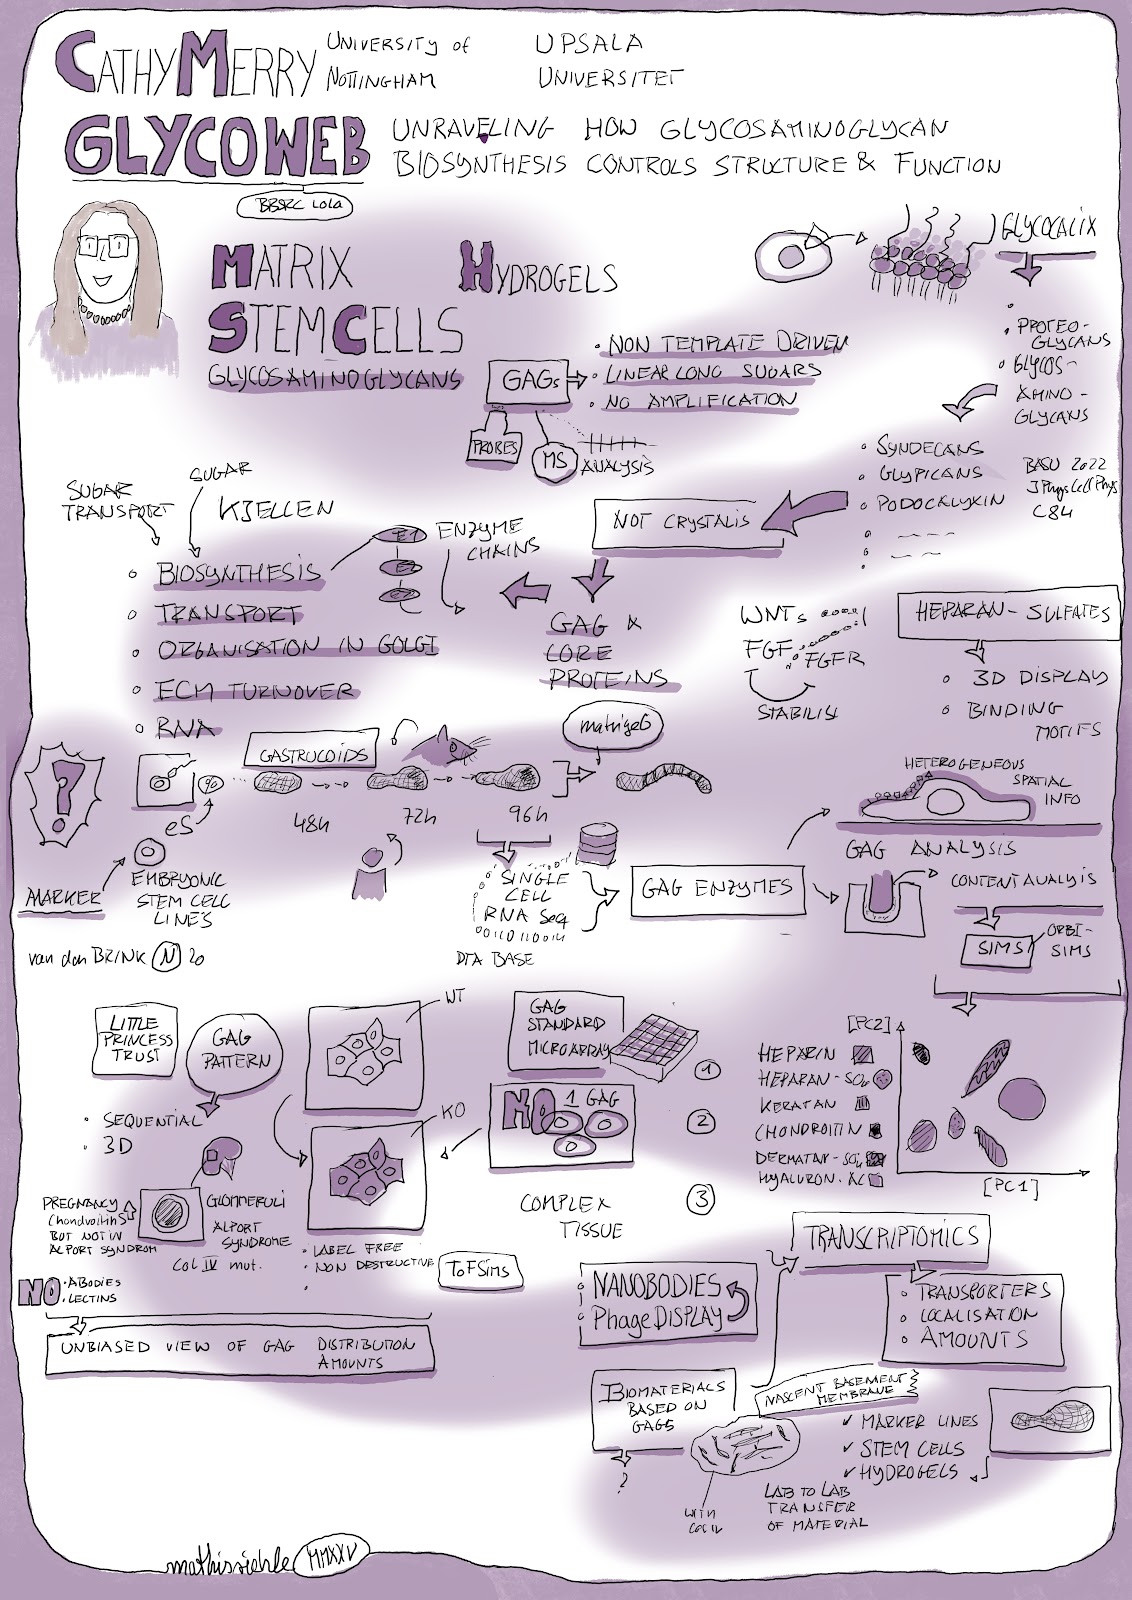 CATHY MERRY
UNIVERSITY of
NOTTINGHAM
UPSALA
UNIVERSITET
GLYCOWEB
UNRAVELING HOW GLYCOSAMINOGLYCAN
BIOSYNTHESIS CONTROLS STRUCTURE & FUNCTION
BBSRC LoLa
MATRIX
HYDROGELS
STEMCELLS
GLYCOSAMINOGLYCANS
GAGs
• NON TEMPLATE DRIVEN
• LINEAR LONG SUGARS
• NO AMPLIFICATION
PROBES
MS
ANALYSIS
GLYCOCALIX
• PROTEO-
GLYCANS
• GLYCOS-
AMINO-
GLYCANS
• SYNDECANS
• GLYPICANS
• PODOCALYXIN
BASU 2022
J Phys Cell Phys
C84
NOT CRYSTALIS
SUGAR
TRANSPORT
SUGAR
KJELLEN
E1
E2
ENZYME
CHAINS
• BIOSYNTHESIS
• TRANSPORT
• ORGANISATION IN GOLGI
• ECM TURNOVER
• RNA
GAG &
CORE
PROTEINS
WNTs
FGF
FGFR
STABILISE
HEPARAN-SULFATES
• 3D DISPLAY
• BINDING
MOTIFS
?
GASTRULOIDS
matrigel
eS
48h
72h
96h
MARKER
EMBRYONIC
STEM CELL
LINES
van den BRINK N 20
SINGLE
CELL
RNA Seq
DTA BASE
GAG ENZYMES
HETEROGENEOUS
SPATIAL
INFO
GAG ANALYSIS
CONTENT ANALYIS
SIMS
ORBI-
SIMS
LITTLE
PRINCESS
TRUST
GAG
PATTERN
• SEQUENTIAL
• 3D
WT
KO
GAG
STANDARD
MICROARRAY
1
NO 1 GAG
2
COMPLEX
TISSUE
3
[PC2]
HEPARIN
HEPARAN-SO4
KERATAN
CHONDROITIN
DERMATAN-SO4
HYALURON. AC
[PC1]
PREGNANCY
Chondroitin S
BUT NOT IN
ALPORT SYNDROM
GLOMMERULI
ALPORT
SYNDROME
Col IV mut.
• LABEL FREE
• NON DESTRUCTIVE
ToFSims
NO
• ABODIES
• LECTINS
UNBIASED VIEW OF GAG DISTRIBUTION
AMOUNTS
TRANSCRIPTOMICS
• TRANSPORTERS
• LOCALISATION
• AMOUNTS
NANOBODIES
Phage DISPLAY
BIOMATERIALS
BASED ON
GAGS
?
NASCENT BASEMENT
MEMBRANE
WITH
COL IV
✓ MARKER LINES
✓ STEM CELLS
✓ HYDROGELS
LAB TO LAB
TRANSFER
OF MATERIAL
mathisriehle
MMXXV